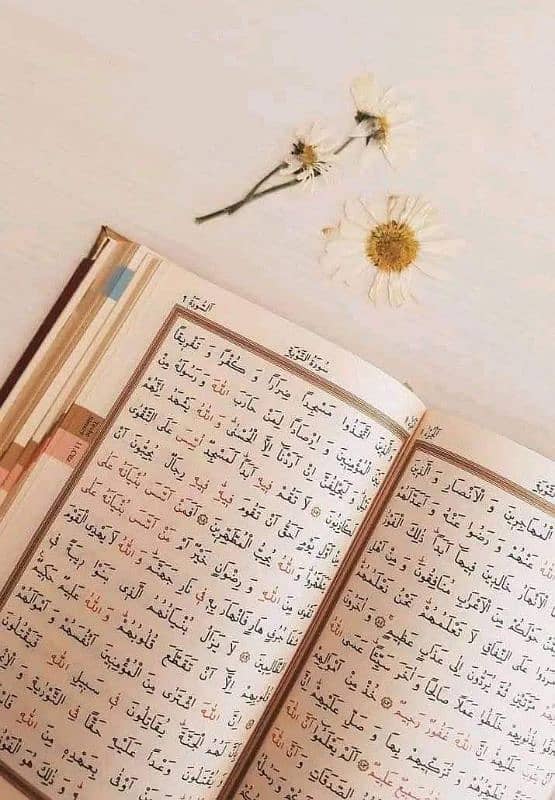 الْمُهَاجِرِينَ وَ الْأَنْصَارِ وَ الَّذِينَ
اللّٰهُ عَنْهُمْ وَ رَضُوا عَنْهُ وَ أَعَدَّ لَهُمْ
الْأَنْهَارُ خَالِدِينَ فِيهَا أَبَدًا ذٰلِكَ الْفَوْزُ
حَوْلَكُمْ مِنَ الْأَعْرَابِ مُنَافِقُونَ وَ مِنْ أَهْلِ
مَرَدُوا عَلَى النِّفَاقِ لَا تَعْلَمُهُمْ نَحْنُ نَعْلَمُهُمْ
مَرَّتَيْنِ ثُمَّ يُرَدُّونَ إِلَى عَذَابٍ عَظِيمٍ وَ آخَرُونَ
بِذُنُوبِهِمْ خَلَطُوا عَمَلًا صَالِحًا وَ آخَرَ سَيِّئًا عَسَى اللّٰهُ
يَتُوبَ عَلَيْهِمْ إِنَّ اللّٰهَ غَفُورٌ رَحِيمٌ خُذْ مِنْ أَمْوَالِهِمْ
تُطَهِّرُهُمْ وَ تُزَكِّيهِمْ بِهَا وَ صَلِّ عَلَيْهِمْ إِنَّ
سَمِيعٌ عَلِيمٌ أَلَمْ يَعْلَمُوا أَنَّ اللّٰهَ
الصَّدَقَاتِ وَ أَنَّ اللّٰهَ
سُورَةُ التَّوْبَةِ
السُّورَةُ ٩
الَّذِينَ اتَّخَذُوا مَسْجِدًا ضِرَارًا وَ كُفْرًا وَ تَفْرِيقًا
بَيْنَ الْمُؤْمِنِينَ وَ إِرْصَادًا لِمَنْ حَارَبَ اللّٰهَ وَ رَسُولَهُ مِنْ
قَبْلُ وَ لَيَحْلِفُنَّ إِنْ أَرَدْنَا إِلَّا الْحُسْنَى وَ اللّٰهُ يَشْهَدُ إِنَّهُمْ
لَكَاذِبُونَ لَا تَقُمْ فِيهِ أَبَدًا لَمَسْجِدٌ أُسِّسَ عَلَى التَّقْوَى
مِنْ أَوَّلِ يَوْمٍ أَحَقُّ أَنْ تَقُومَ فِيهِ فِيهِ رِجَالٌ يُحِبُّونَ أَنْ
يَتَطَهَّرُوا وَ اللّٰهُ يُحِبُّ الْمُطَّهِّرِينَ أَفَمَنْ أَسَّسَ بُنْيَانَهُ عَلَى
تَقْوَى مِنَ اللّٰهِ وَ رِضْوَانٍ خَيْرٌ أَمْ مَنْ أَسَّسَ بُنْيَانَهُ عَلَى
شَفَا جُرُفٍ هَارٍ فَانْهَارَ بِهِ فِي نَارِ جَهَنَّمَ وَ اللّٰهُ لَا يَهْدِي الْقَوْمَ
الظَّالِمِينَ لَا يَزَالُ بُنْيَانُهُمُ الَّذِي بَنَوْا رِيبَةً فِي
قُلُوبِهِمْ إِلَّا أَنْ تَقَطَّعَ قُلُوبُهُمْ وَ اللّٰهُ عَلِيمٌ حَكِيمٌ
إِنَّ اللّٰهَ اشْتَرَى مِنَ الْمُؤْمِنِينَ أَنْفُسَهُمْ وَ أَمْوَالَهُمْ
بِأَنَّ لَهُمُ الْجَنَّةَ يُقَاتِلُونَ فِي سَبِيلِ اللّٰهِ فَيَقْتُلُونَ
وَ يُقْتَلُونَ وَعْدًا عَلَيْهِ حَقًّا فِي التَّوْرَاةِ وَ الْإِنْجِيلِ
أَوْفَى بِعَهْدِهِ مِنَ اللّٰهِ
وَ ذٰلِكَ هُوَ الْفَوْزُ